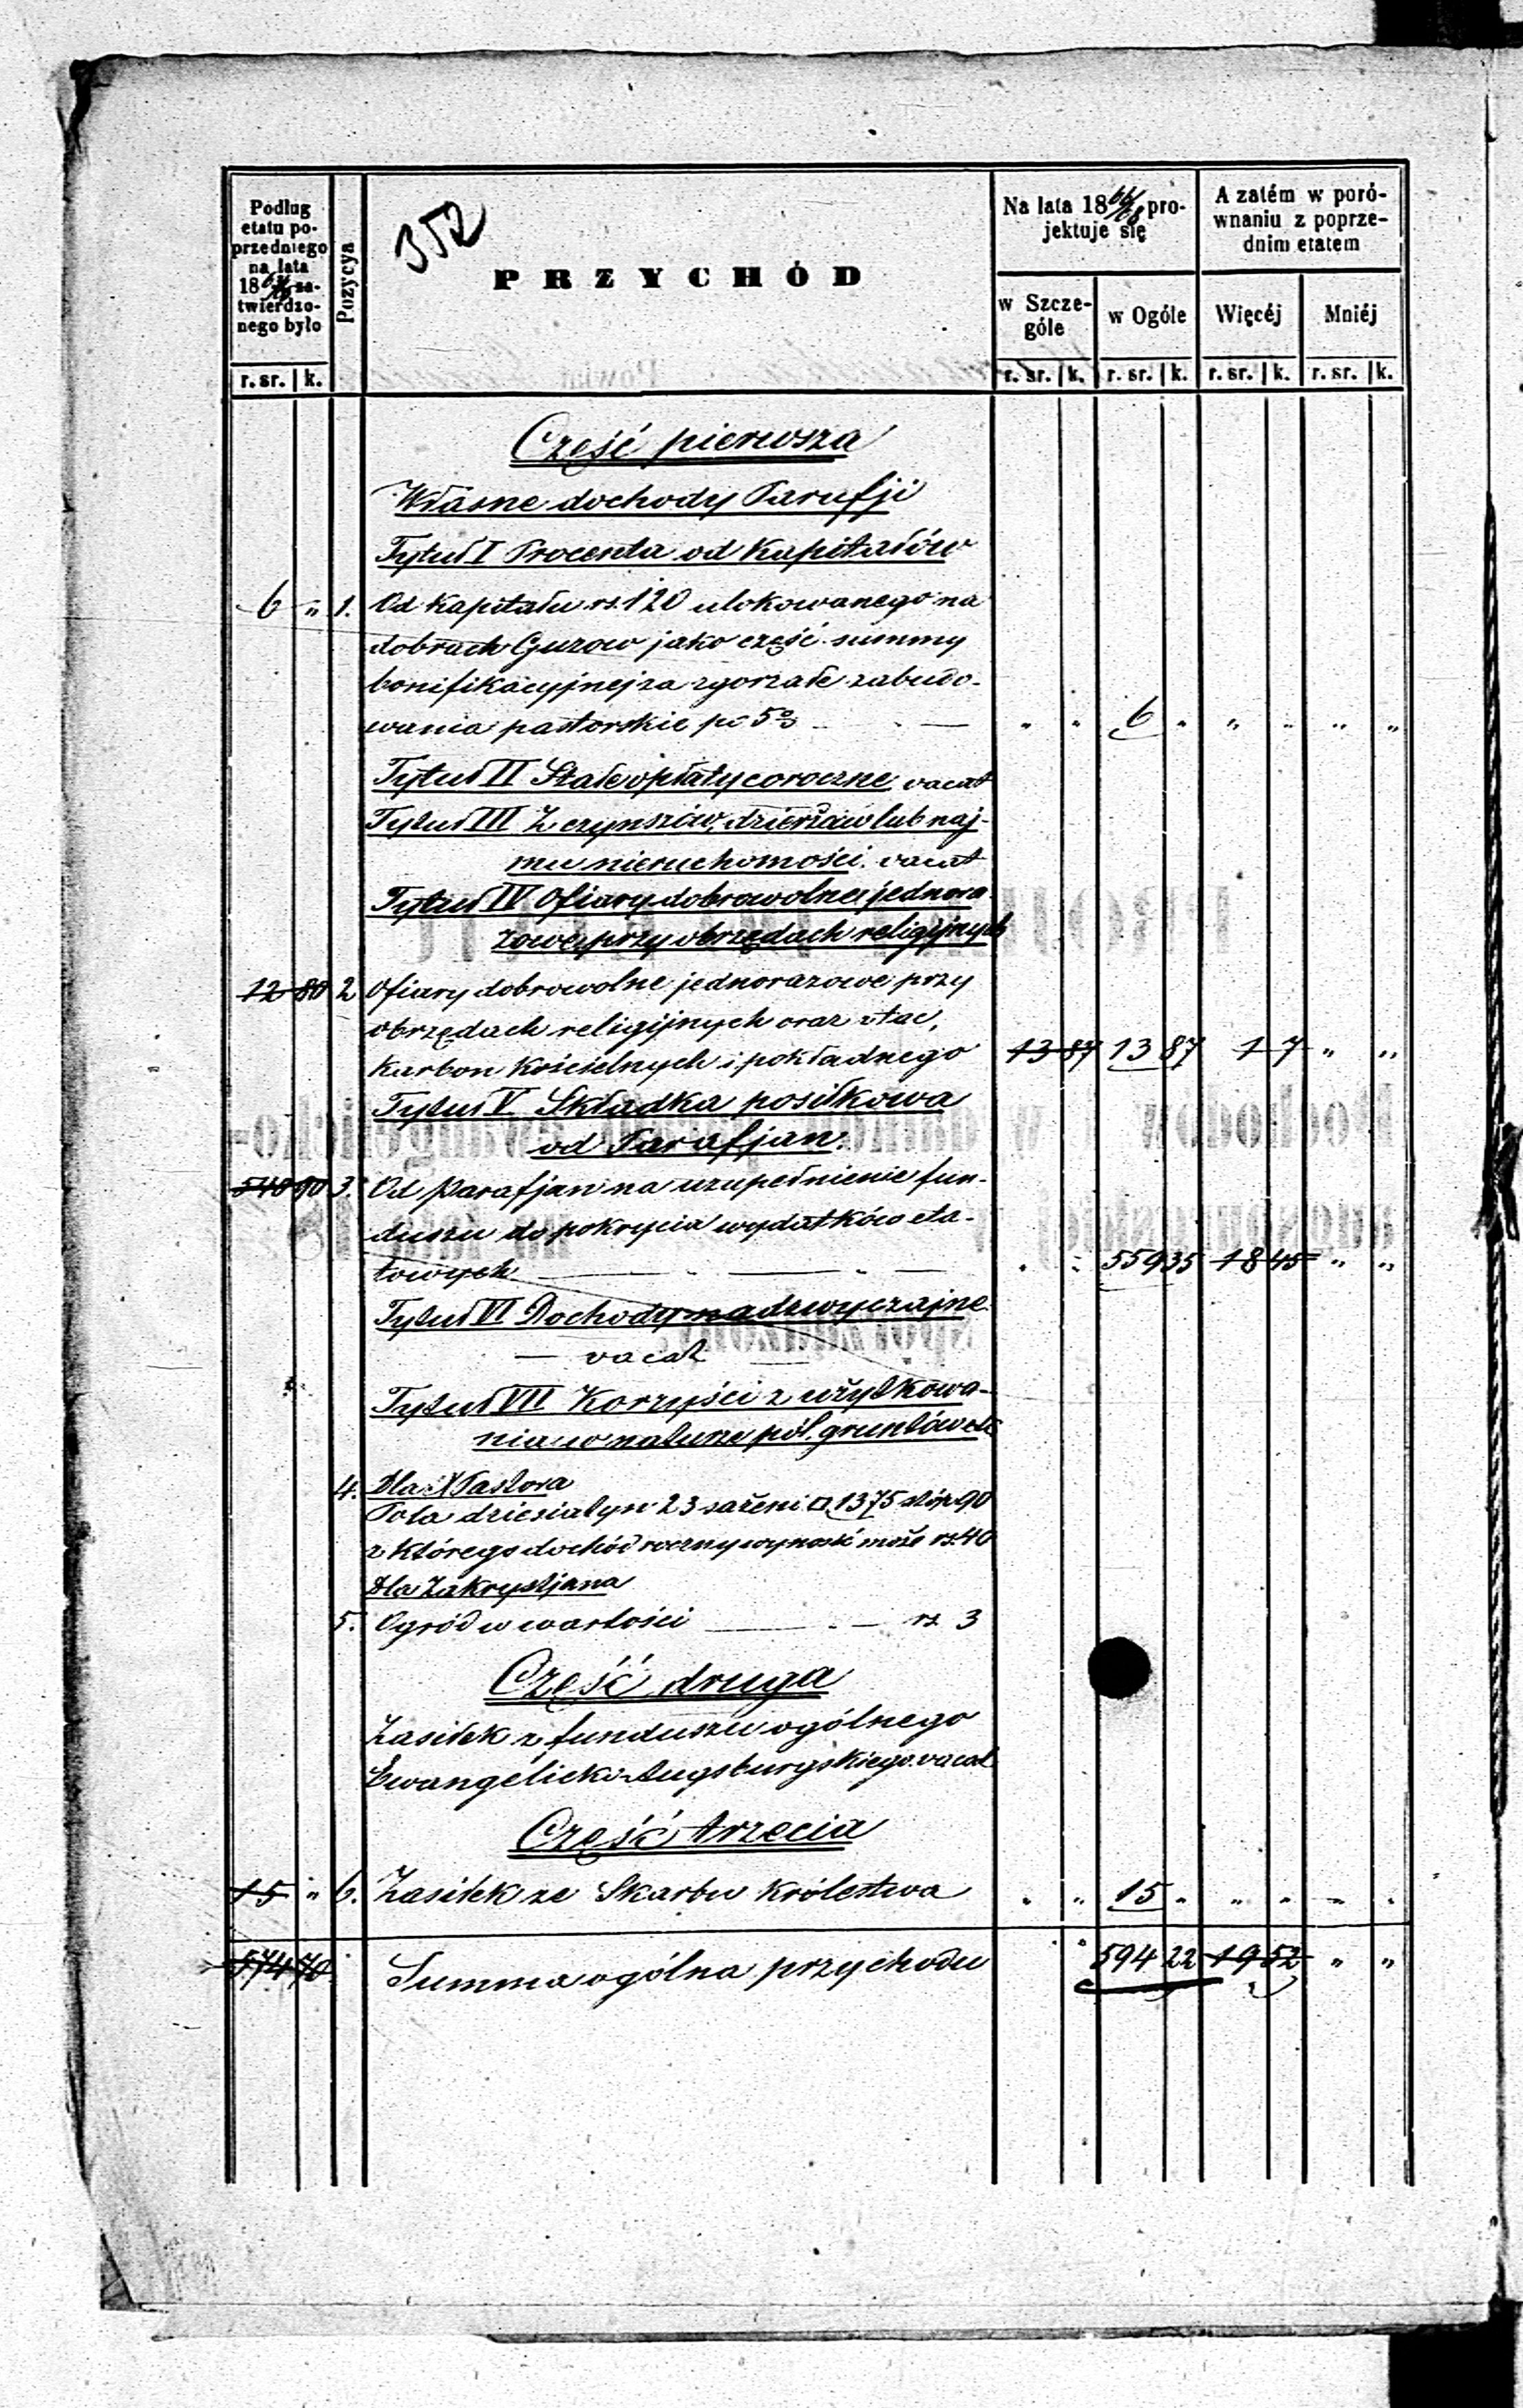 352
Podług
etatu po-
przedniego
na lata
18 za-
twierdzo-
nego było
Pozycya
PRZYCHÓD
Na lata 18 66/68 pro-
jektuje się
A zatém w poró-
wnaniu z poprze-
dnim etatem
w Szcze-
góle
w Ogóle
Więcéj
Mniéj
r. sr. k. r. sr. k. r. sr. k. r. sr. k. r. sr. k.
Część pierwsza
Własne dochody Parafji
Tytuł I Procenta od Kapitałów
6 " 1. Od Kapitału rs. 120 ulokowanego na
dobrach Guzow jako część summy
bonifikacyjnej za zgorzałe zabudo-
wania pastorskie po 5% " " 6 " " " " "
Tytuł II Stałe wpłaty coroczne vacat
Tytuł III Z czynszów, dzierżaw lub naj-
mu nieruchomości. vacat
Tytuł IV Ofiary dobrowolne jednora-
zowe przy obrzędach religijnych
12 80 2 Ofiary dobrowolne jednorazowe przy
obrzędach religijnych oraz z tac,
Karbon Kościelnych i pokładnego 13 87 13 87 1 7 " "
Tytuł V Składka posiłkowa
od Parafjan.
540 90 3. Od Parafjan na uzupełnienie fun-
duszu do pokrycia wydatków eta-
towych " " 559 35 18 45 " "
Tytuł VI Dochody nadzwyczajne
— vacat —
Tytuł VII Korzyści z użytkowa-
nia w naturze pól, gruntów etc
4. Dla X Pastora
Pola dziesiatyn 23 sażeni □ 1375 stóp 90
z którego dochód roczny wynosić może rs. 40
Dla Zakrystjana
5. Ogród w wartości — rs. 3
Część druga
Zasiłek z funduszu ogólnego
Ewangelicko-Augsburgskiego. vacat
Część trzecia
15 " 6. Zasiłek ze Skarbu Królestwa " " 15 " " " " "
574 70 Summa ogólna przychodu " 594 22 19 52 " "